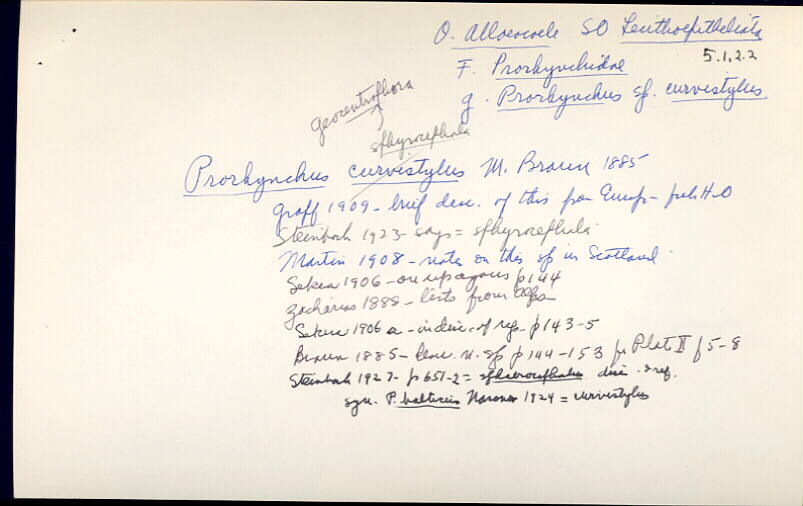 O. Alloeocoele SO Lecithoepitheliata
5.1.2.2
F. Prorhynchidae
g. Prorhynchus sp. curvistylus
geocentrophora
sphyrocephala
Prorhynchus curvistylus M. Braun 1885
Graff 1909 - brief desc. of this from Europe - fresh H2O
Steinbock 1923 - says = sphyrocephala
Martin 1908 - notes on this sp in Scotland
Sekera 1906 - on p144
Zacharias 1888 - lists from
Sekera 1906a - of reg. - p143-5
Braun 1885 - desc. n. sp p144-153 Plate II f5-8
Steinbock 1927 - p651-2 = disc. ref.
syn. P. balticus Nasonov 1924 = curvistylus